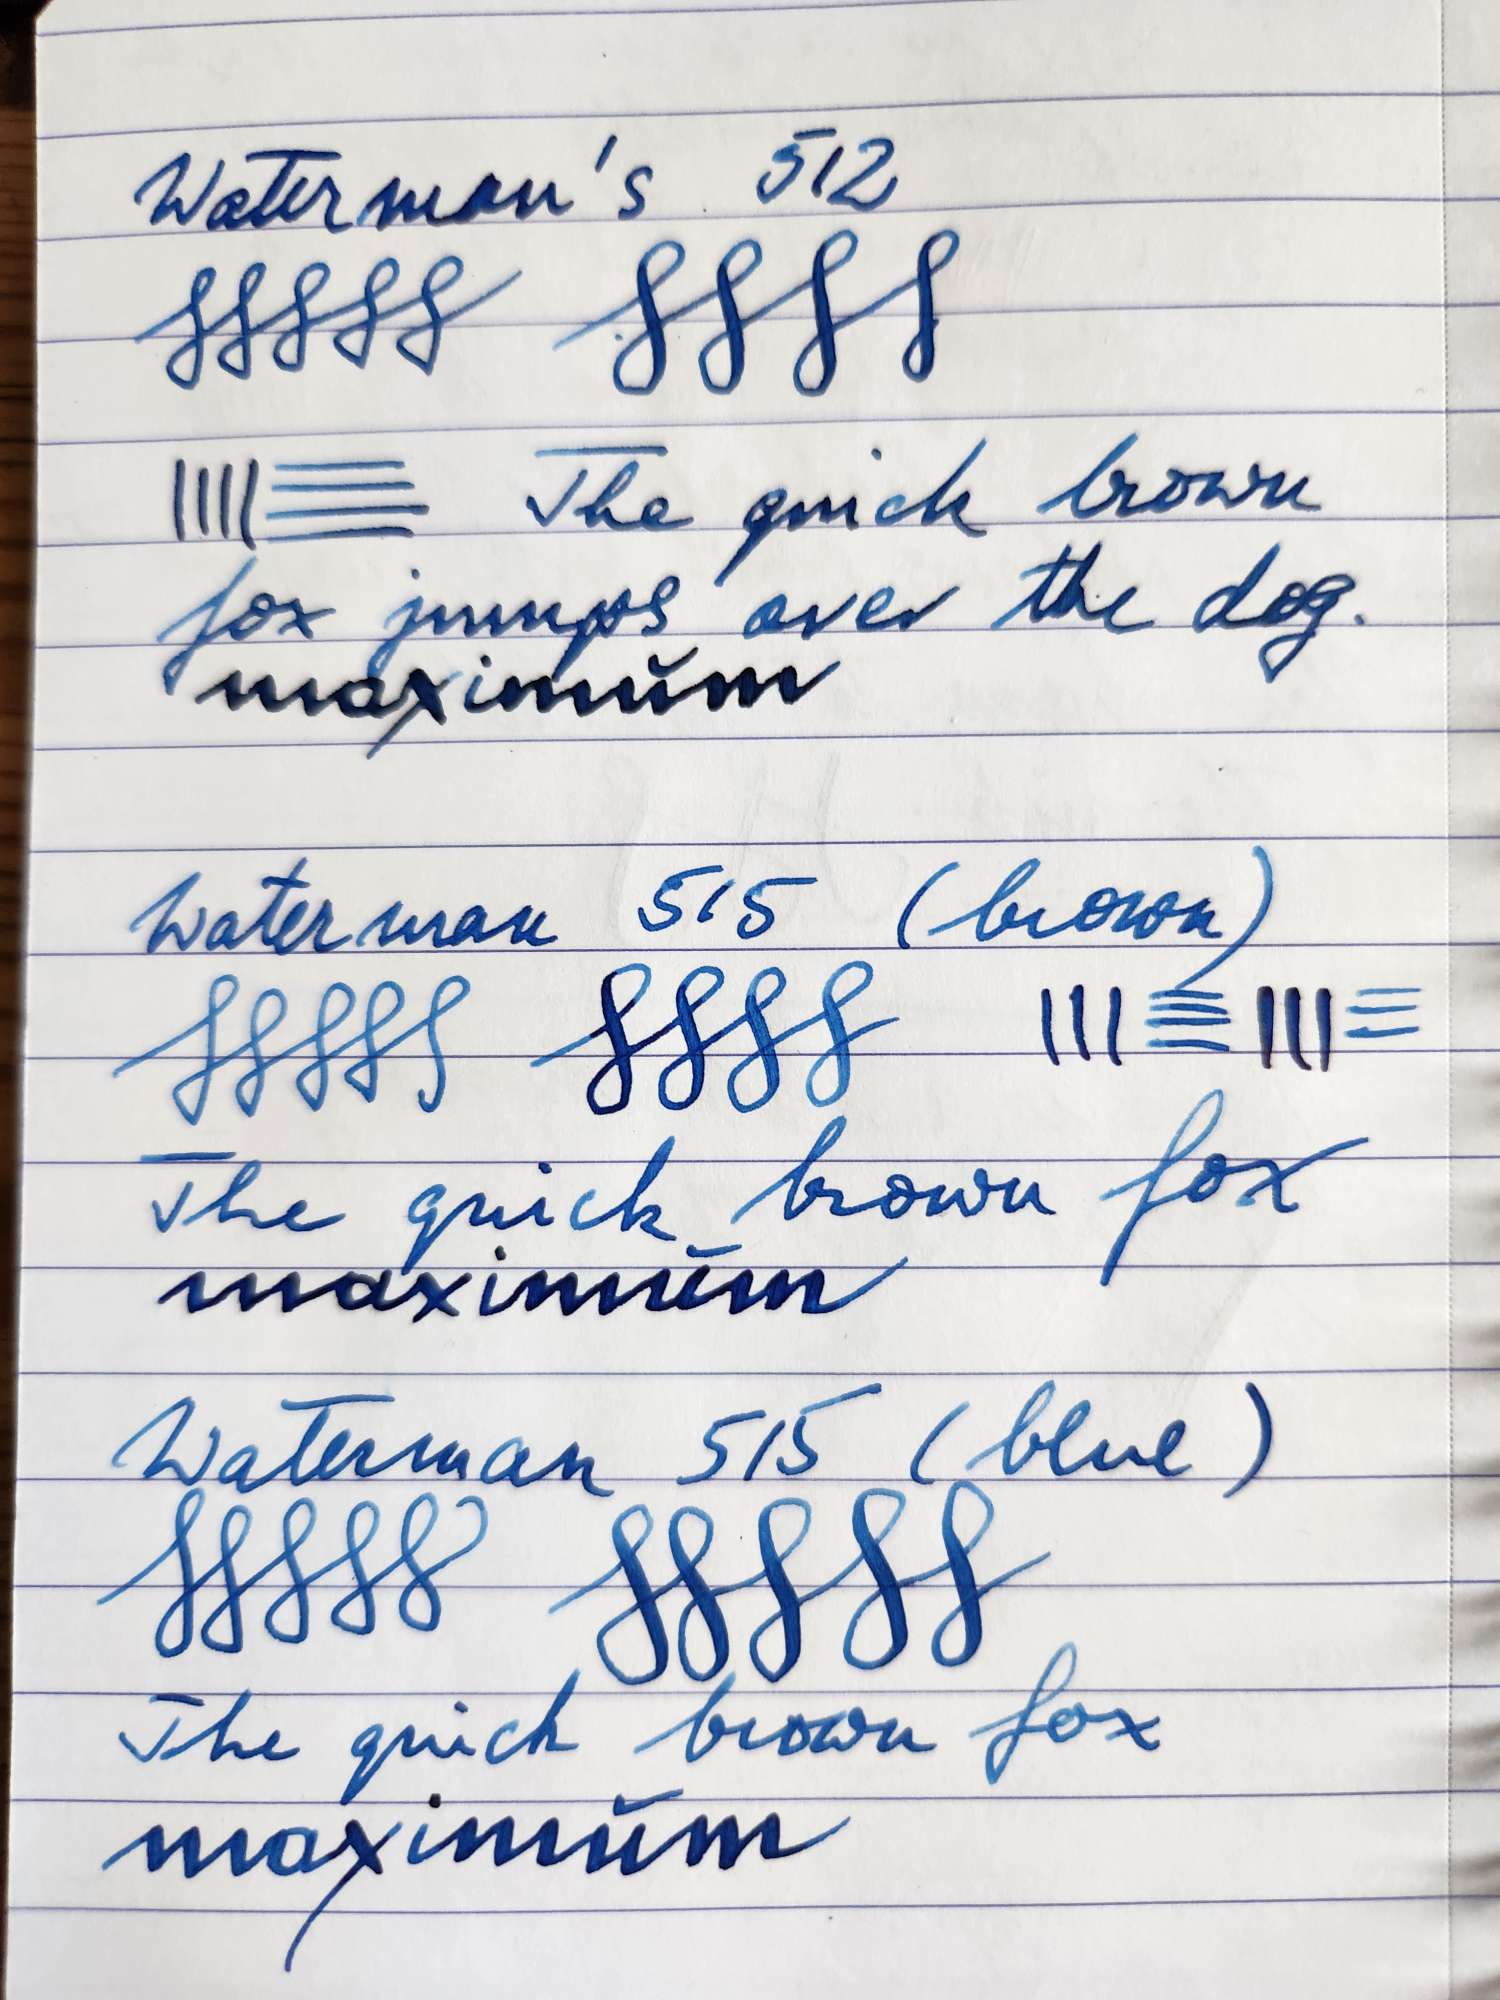 Waterman's 512
The quick brown
fox jumps over the dog.
maximŭm
Waterman 515 (brown)
The quick brown fox
maximŭm
Waterman 515 (blue)
The quick brown fox
maximŭm